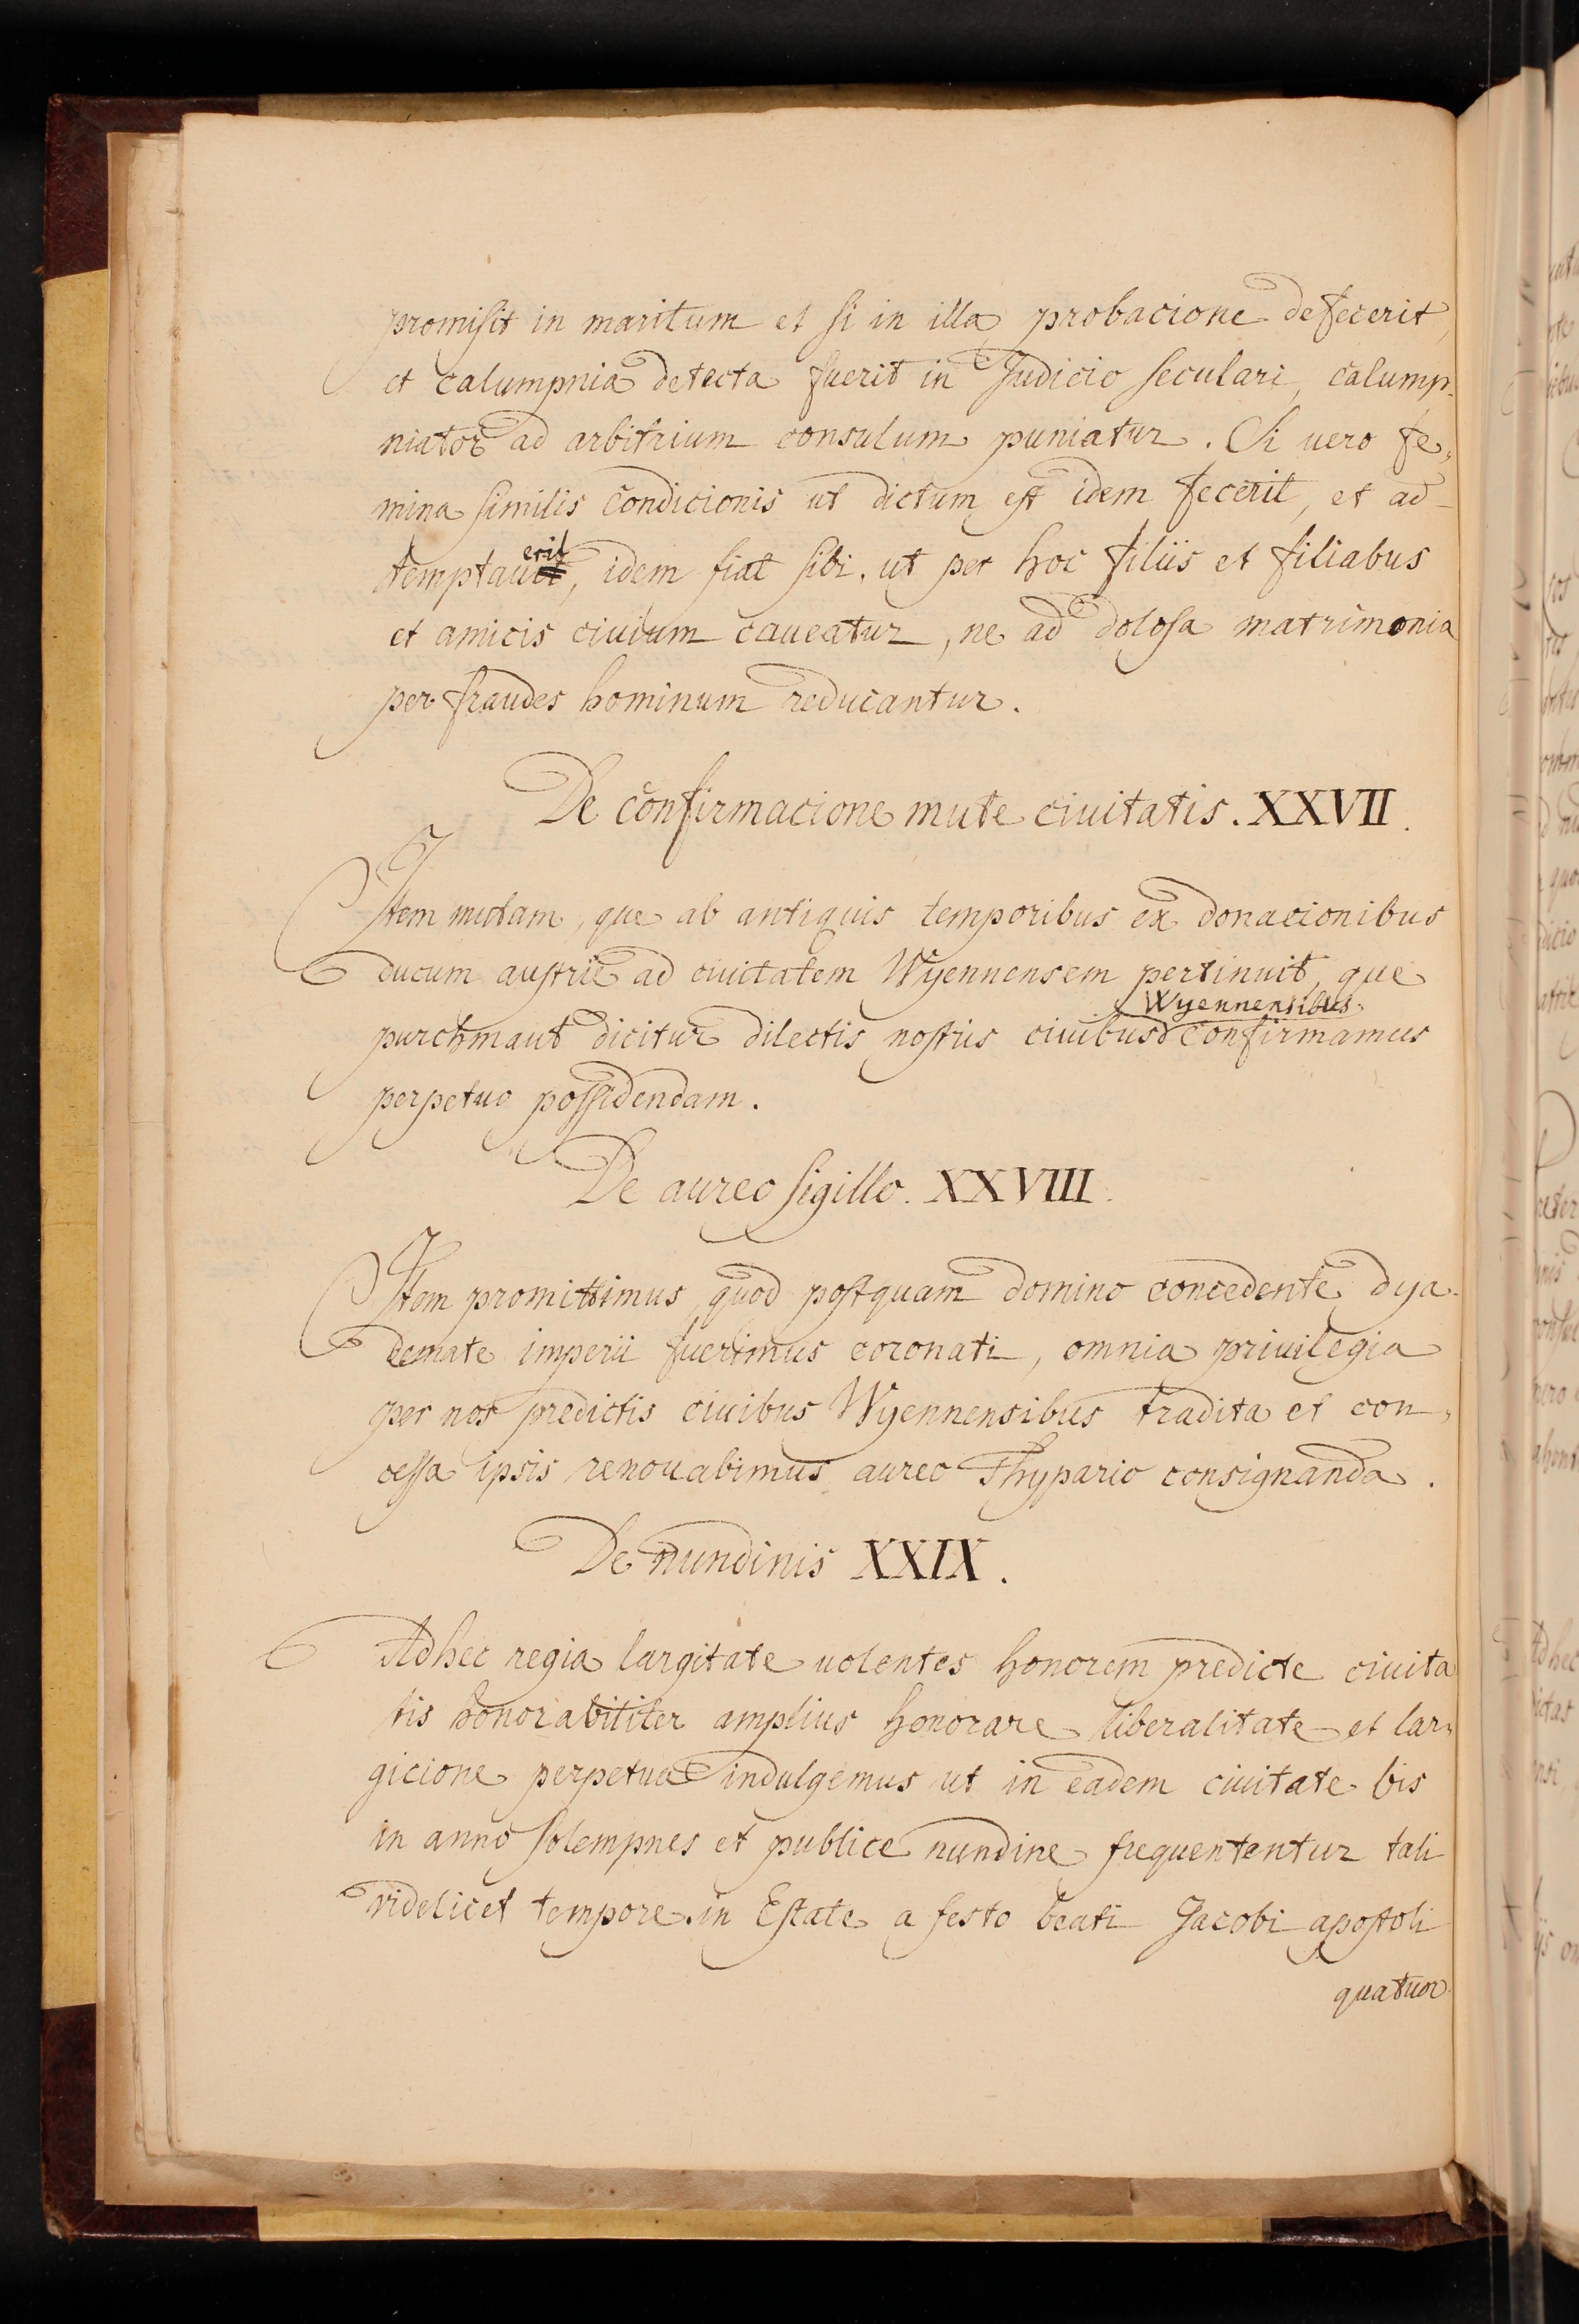 promisit in maritum et si in illa probacione defecerit,
et calumpnia detecta fuerit in Judicio seculari, calump-
niator ad arbitrium consulum puniatur. Si uero fe-
mina similis condicionis ut dictum est idem fecerit, et ad-
erit
temptauit, idem fiat sibi, ut per hoc filiis et filiabus
et amicis ciuium caueatur, ne ad dolosa matrimonia
per fraudes hominum reducantur.
De confirmacione mute ciuitatis. XXVII.
Item mutam, que ab antiquis temporibus ex donacionibus
ducum austrie ad ciuitatem Wyennensem pertinuit, que
Wyennensibus
purchmaut dicitur dilectis nostris ciuibus confirmamus
perpetuo possidendam.
De aureo sigillo. XXVIII.
Item promittimus, quod postquam domino concedente, dya-
demate imperii fuerimus coronati, omnia priuilegia
per nos predictis ciuibus Wyennensibus tradita et con-
cessa ipsis renouabimus aureo Thypario consignanda.
De nundinis XXIX.
Adhec regia largitate uolentes honorem predicte ciuita
tis honorabiliter amplius honorare liberalitate et lar-
gicione perpetua indulgemus ut in eadem ciuitate bis
in anno solempnes et publice nundine frequententur tali
videlicet tempore. in Estate a festo beati Jacobi apostoli
quatuor